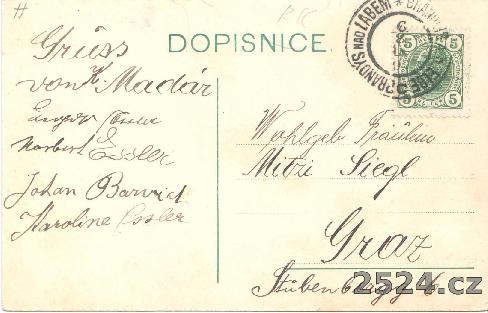 DOPISNICE.
Grüss
von K. Madár
Essler
Norbert Essler
Johan
Karoline Essler
BRANDÝS NAD LABEM
5 5
5 5
Wohlgeb Fräulein
Mitzi Siegl
Graz
6
2524.cz